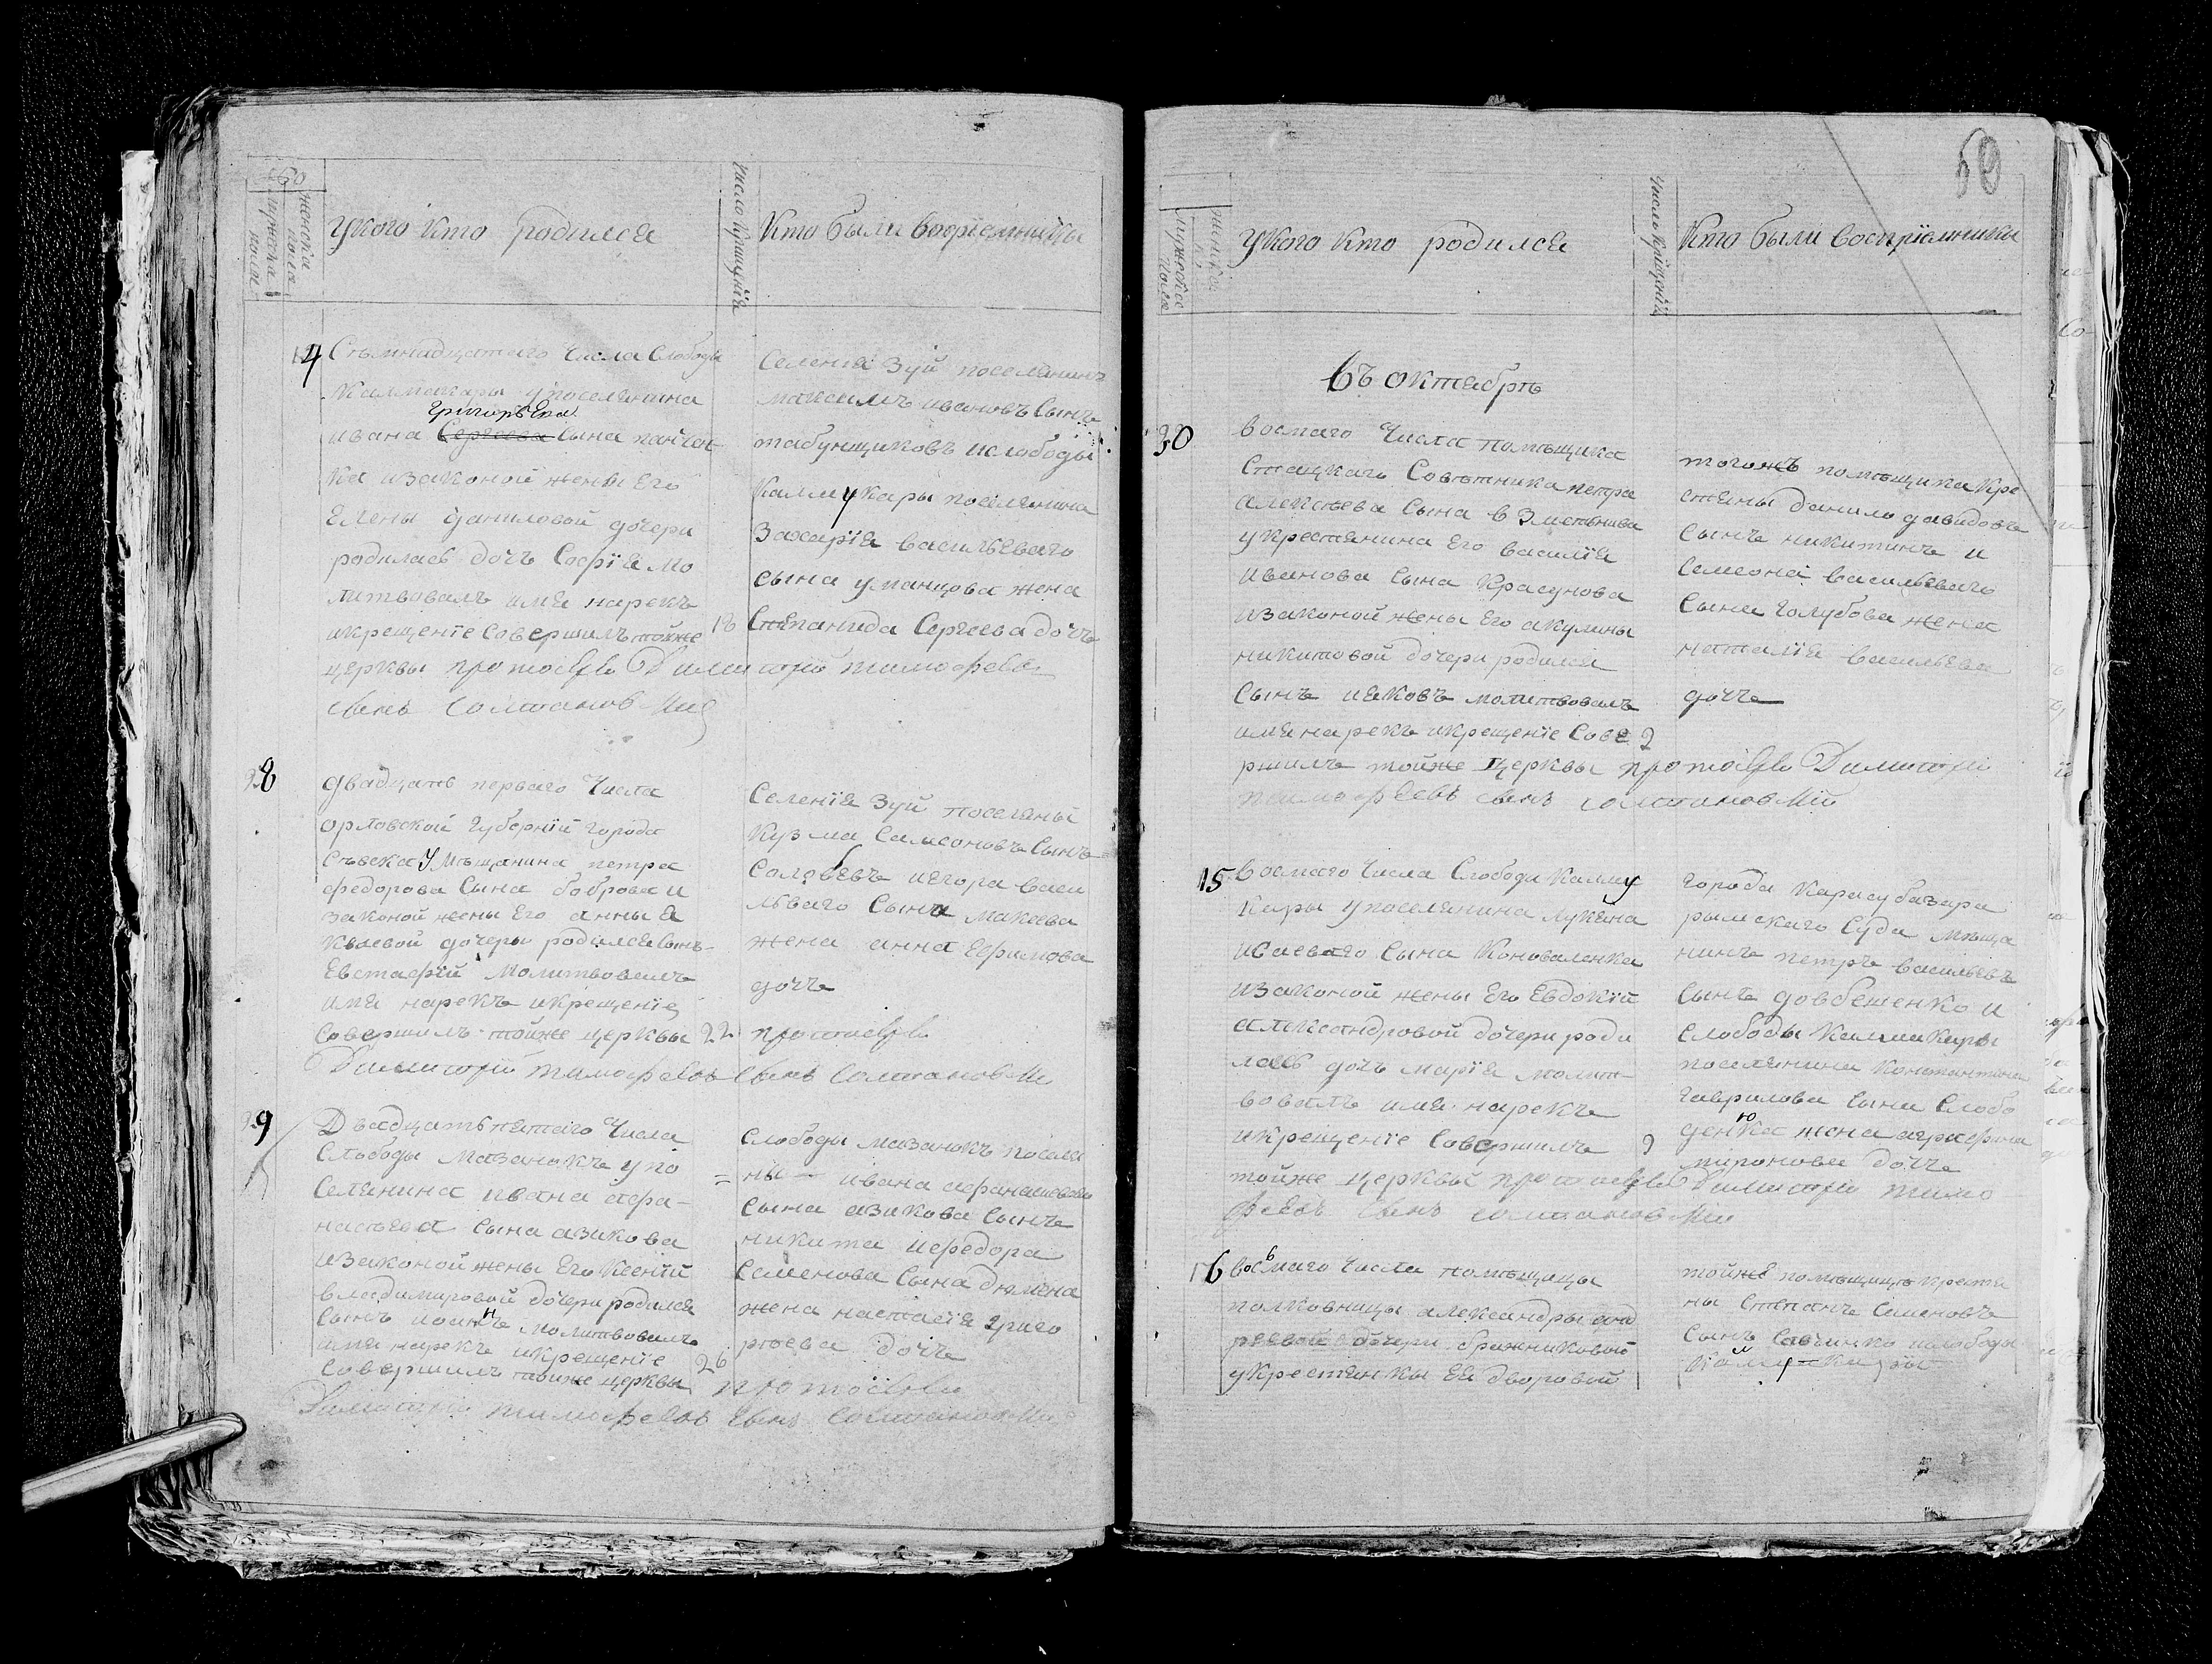 женска пола
мужеска пола
у кого кто родился
число крещенїя
Кто были восприемники
14
Съмнадцатаго Числа Слободы
Калмакары упоселянина
григорьева
ивана Сергеева Сына панчен
ка иззаконой жены Его
Елены даниловой дочери
родилась дочъ Софїя мо
литвовалъ имя нарекъ
икрещенїе Совершилъ тойже 18
церквы протоїерей Димитрїй тимофеевъ
Сынъ
Селенїя Зуй поселянинъ
максимъ ивановъ Сынъ
табунщиковъ ислободы
Калмукары поселянина
Захарїя васильеваго
сына уманцова жена
Степанида Сергеева дочъ
28
двадцать перваго Числа
орловской Губернїй города
Съвска У мъщанина петра
федорова Сына боброва и
законой жены Его анны Я
ковлевой дочеры родился Сынъ
Евстафїй молитвовалъ
имя нарекъ икрещенїе
совершилъ тойже церквы 22 протоїерей
Димитрїй тимофеевъ Сынъ
Селенїя Зуй поселяны
Кузма Самсоновъ Сынъ
Соловьевъ иегора васи
льваго Сына макаева
жена анна Ефимова
дочъ
29
Двадцать пятаго Числа
Слободы мазанокъ упо
Селянина ивана афа-
насьева Сына азикова
иззаконой жены Его Ксенїй
владимировой дочери родился
Сынъ иоаннъ молитвовалъ
имя нарекъ икрещенїе
совершилъ тойже церквы 26 протоїерей
Димитрїй тимофеевъ Сынъ
Слободы мазанокъ посели
ны ивана афанасиеваго
Сына азикова Сынъ
никита ифедора
Семенова Сына дюмена
жена настасїя григо
рьева дочъ
50
женска
мужеска пола
у кого кто родился
число крещенїя
Кто были восприемники
въ октябръ
30
восмаго Числа помъщика
Стацкаго Совътника петра
алексъева Сына
укрестянина Его василїя
иванова Сына Красунова
иззаконой жены Его акулины
никитовой дочери родился
Сынъ ияковъ молитвовалъ
имя нарекъ икрещенїе Сове 9
ршилъ тойже Церквы протоїерей Димитрїй
тимофеевъ Сынъ
тогожъ помъщика Кре
стяны данило давидовъ
Сынъ никитинъ и
Семеона васильеваго
Сына Голубова жена
наталїя васильева
дочъ
15
восмаго Числа Слободи Калму
Кары упоселянина лукяна
исаеваго Сына Коноваленка
иззаконой жены Его Евдокїй
александровой дочери роди
лась дочъ марїя молит-
вовалъ имя нарекъ
икрещенїе Совершилъ 9
тойже Церквы протоїерей Димитрїй тимо
феевъ Сынъ
Города Карасубазара
рымскаго Суда мъща
нинъ петръ васильевъ
Сынъ довбешенко и
Слободы Калмакары
поселянина Константина
гаврилова Сына Слобо
денюка жена аграфина
миронова дочъ
16
восмаго Числа помъщицы
полковницы александры анд
реевой дочери бражниковой
укрестянкы Ея дворовой
тойже помъщицъ крестя
ны Степанъ Семеновъ
Сынъ Савченко ислободы
Калмукары